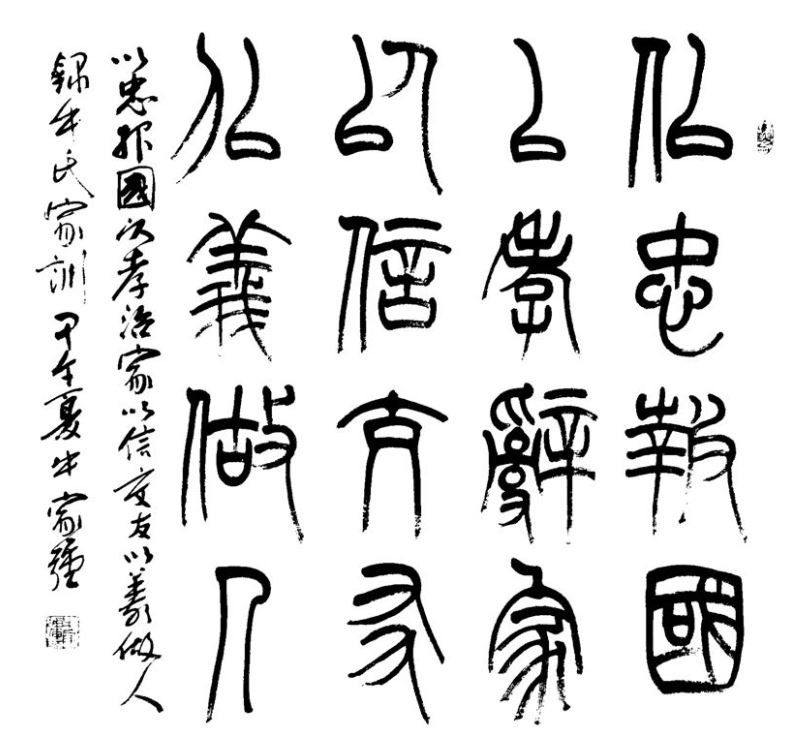 以忠報國
以孝辭家
以信交友
以義做人
以忠報國以孝治家以信交友以義做人
錄牛氏家訓甲午夏牛家强